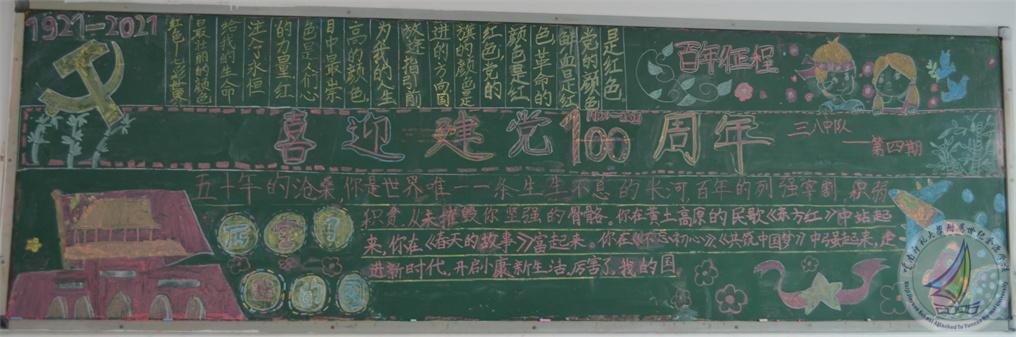 1921—2021
是红色
党的颜色
鲜血是红
色革命的
颜色是红
红色党的
旗的颜色是
进的方向国
指引前
为我的人生
高的颜色
目中最崇
色是人们心
的力量红
注入永恒
给我的生命
最壮丽的颜色
红色
百年征程
喜迎建党100周年
三八中队
——第四期
五千年的沧桑你是世界唯一一条生生不息的长河,百年的列强宰割,积弱
积贫,从未摧毁你坚强的骨骼。你在黄土高原的民歌《东方红》中站起
来,你在《春天的故事》富起来。你在《不忘初心》《共筑中国梦》中强起来,走
进新时代,开启小康新生活,厉害了,我的国
厉害了
我的国